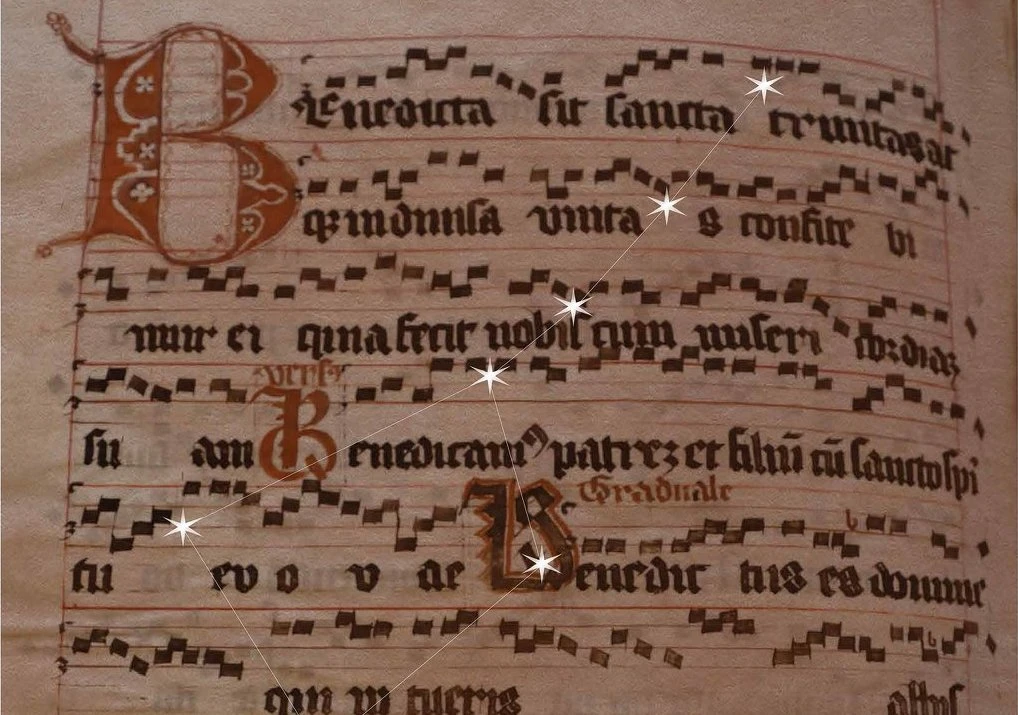 Benedicta sit sancta trinitas at
qz indiuisa vnita s confite bi
mur ei quia fecit nobis cum miseri cordiaz
vers9
su am Benedicam9 patrez et filiū cū sancto spi
Graduale
tu ev o v ae Benedic tus es domine
qui in tueris abys